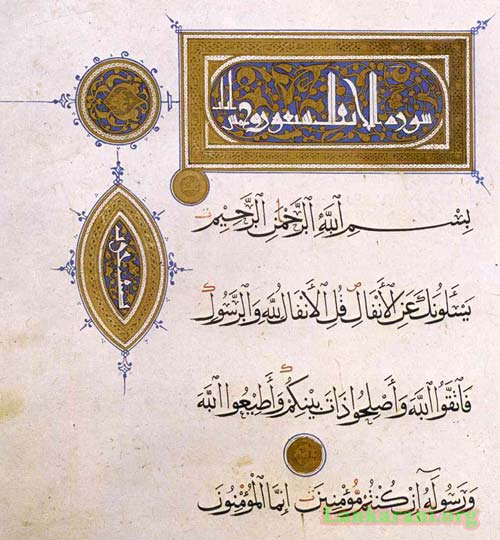 سورة الانفال سبعون وخمس ايات
بِسْمِ اللَّهِ الرَّحْمَٰنِ الرَّحِيمِ
يَسْأَلُونَكَ عَنِ الْأَنْفَالِ قُلِ الْأَنْفَالُ لِلَّهِ وَالرَّسُولِ
فَاتَّقُوا اللَّهَ وَأَصْلِحُوا ذَاتَ بَيْنِكُمْ وَأَطِيعُوا اللَّهَ
وَرَسُولَهُ إِنْ كُنْتُمْ مُؤْمِنِينَ إِنَّمَا الْمُؤْمِنُونَ
Lankarani.org